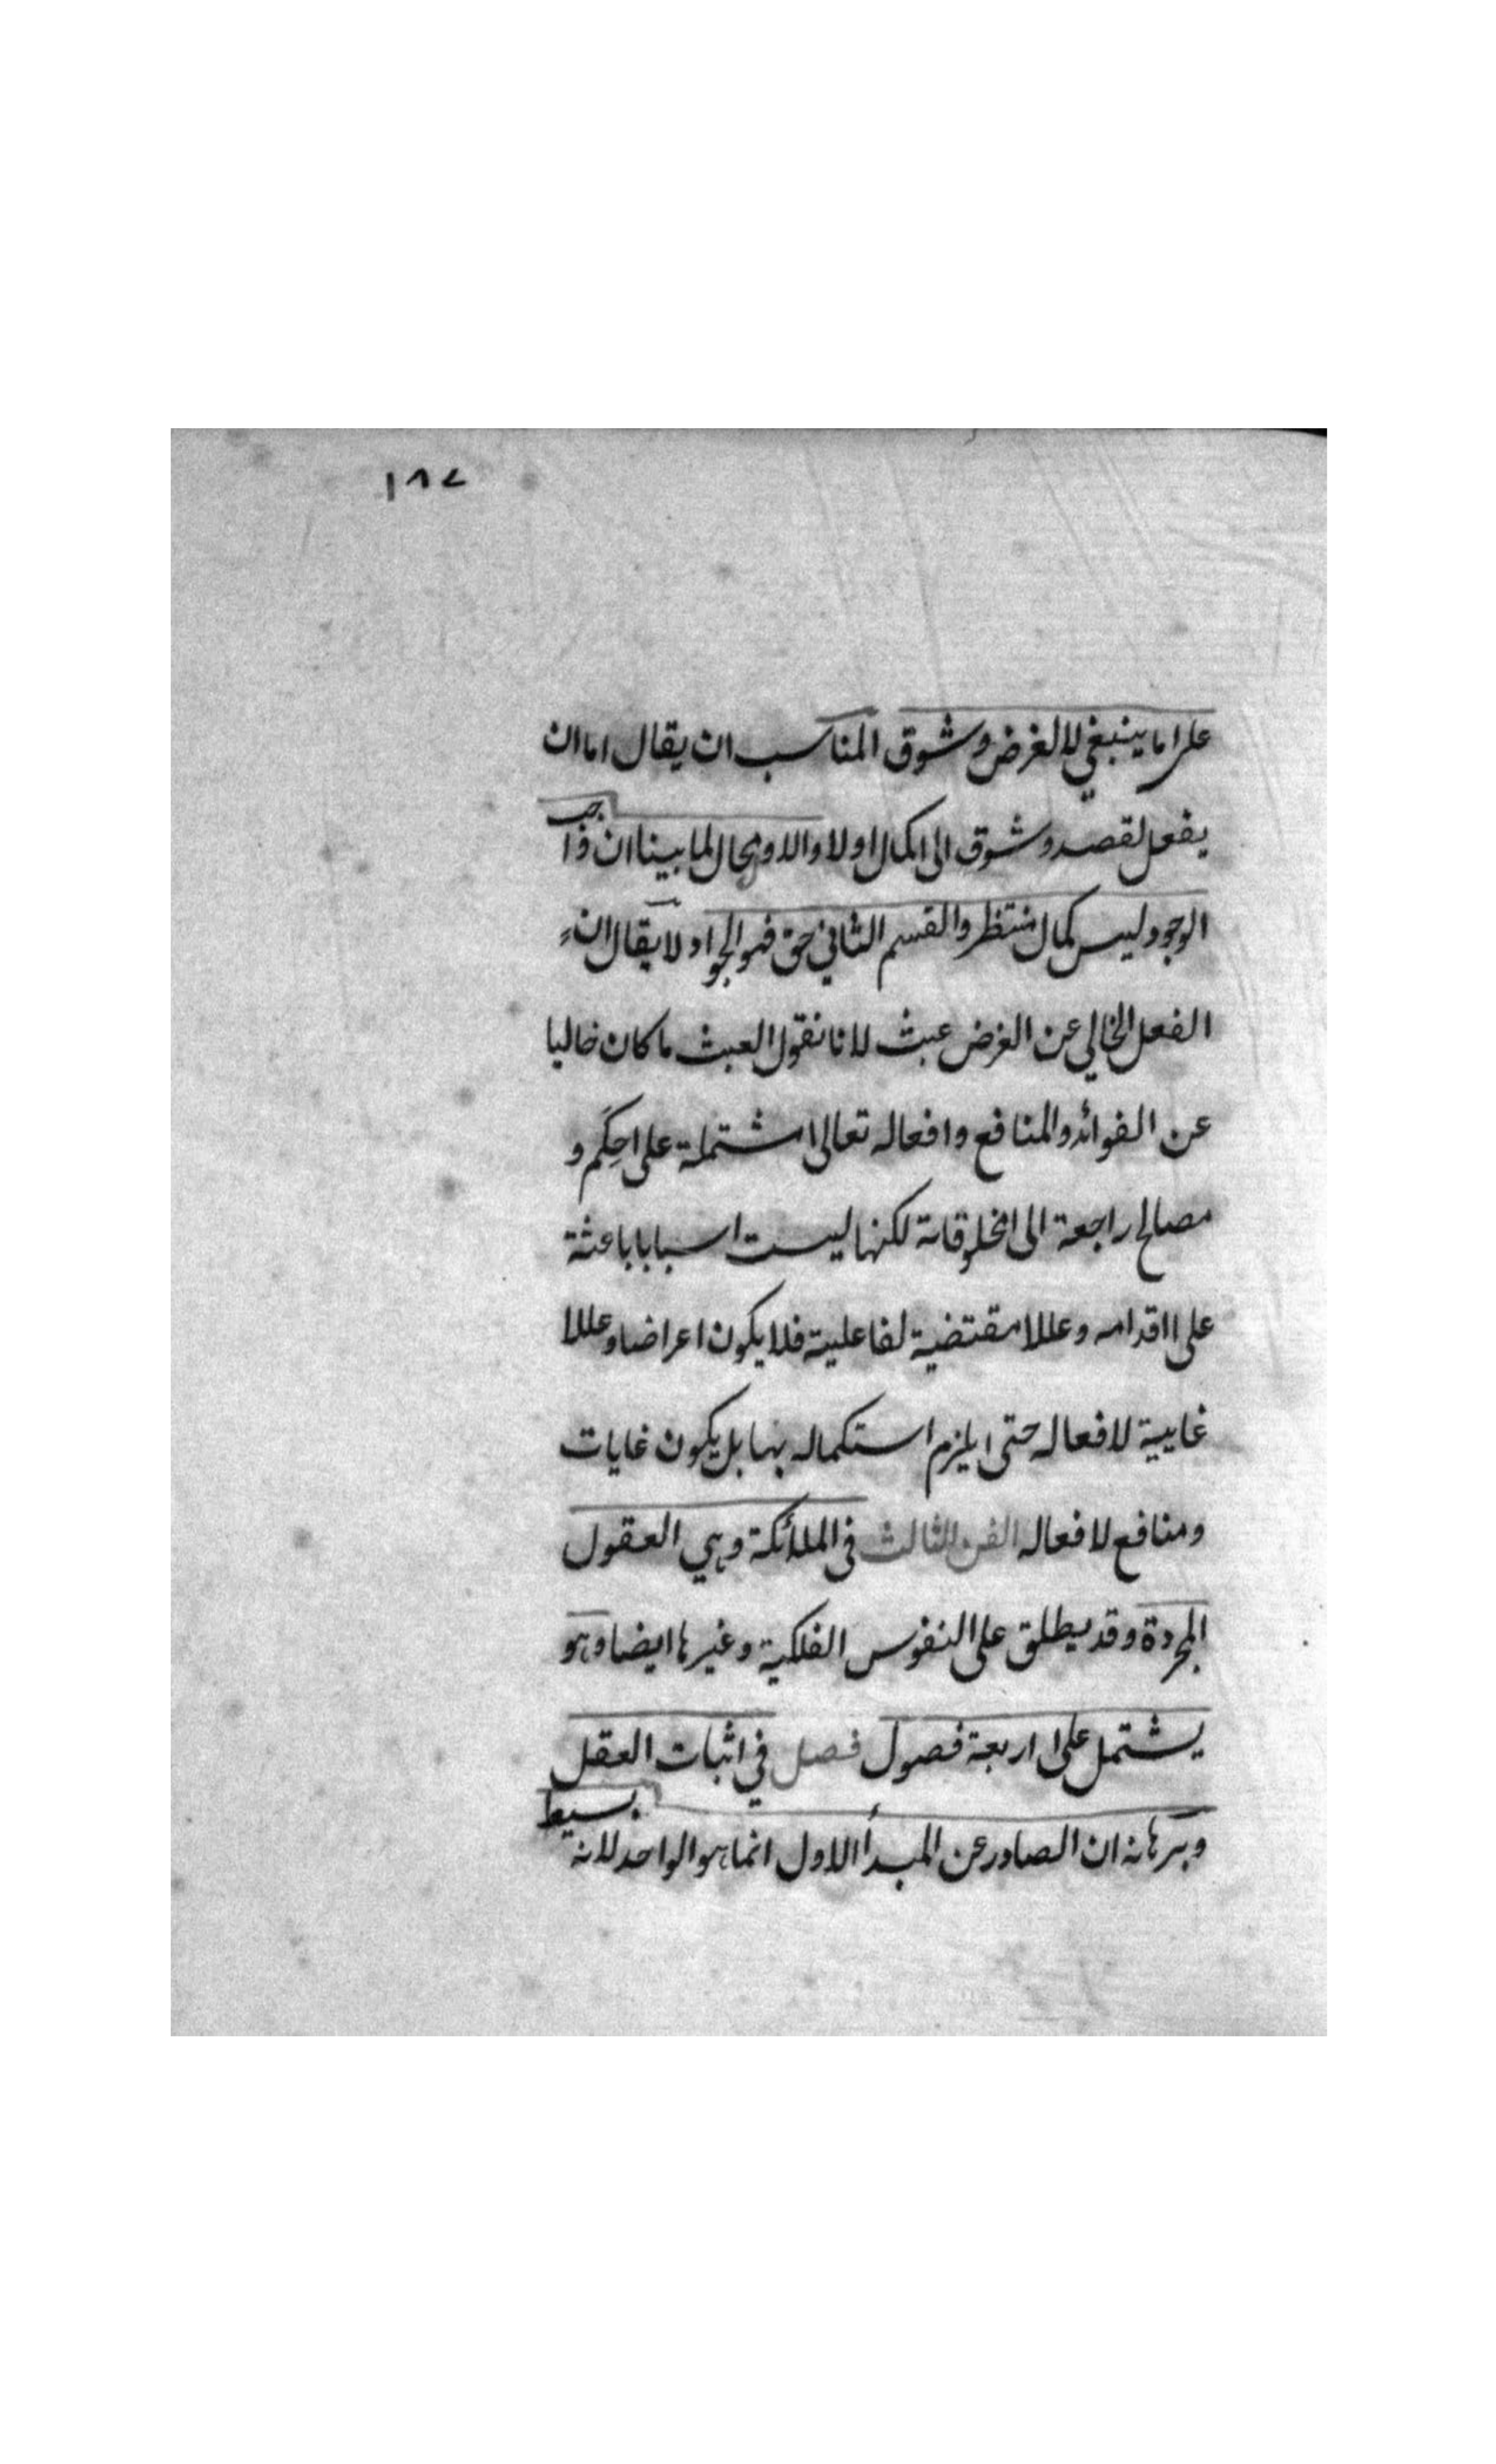 ١٨٧
على ما ينبغي لا لغرض وشوق المناسب ان يقال اما ان
يفعل لقصد وشوق الى الكمال اولا والاول محال لما بينا ان واجب
الوجود ليس كمال منتظر والقسم الثاني حق فهو الجواد لا يقال ان
الفعل الخالي عن الغرض عبث لانا نقول العبث ما كان خاليا
عن الفوائد والمنافع وافعاله تعالى مشتملة على حكم و
مصالح راجعة الى مخلوقاته لكنها ليست اسبابا باعثة
على اقدامه وعللا مقتضية لفاعليته فلا يكون اعراضا وعللا
غاييية لافعاله حتى يلزم استكماله بها بل يكون غايات
ومنافع لافعاله الفن الثالث في الملائكة وهي العقول
المجردة وقد يطلق على النفوس الفلكية وغيرها ايضا وهو
يشتمل على اربعة فصول فصل في اثبات العقل
وبرهانه ان الصادر عن المبدأ الاول انما هو الواحد لانه بسيط